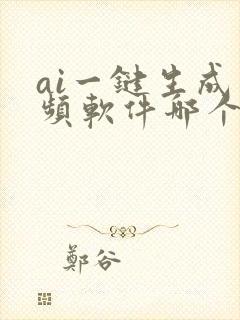 ai一鍵生成
頻軟件哪个
鄭谷